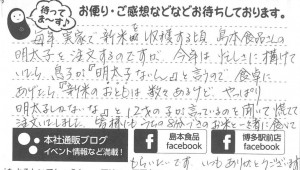 待ってま～す♪
お便り・ご感想などなどお待ちしております。
毎年 実家で 新米 収穫する頃 島本食品さんの
明太子を注文するのですが、今年は忙しさに構けて
いたら 息子が『明太子ないん』と言うので 食卓に
あげたら『新米のおともは数々あるけど やっぱり
明太子しかないな』と 12才の子が言っているのを聞いて 慌てて
注文いたしまして 皆様にも うちの お米と一緒に食べて
もらいたいです いつもありがとうございます
本社通販ブログ
イベント情報など満載!
島本食品
facebook
博多駅前店
facebook